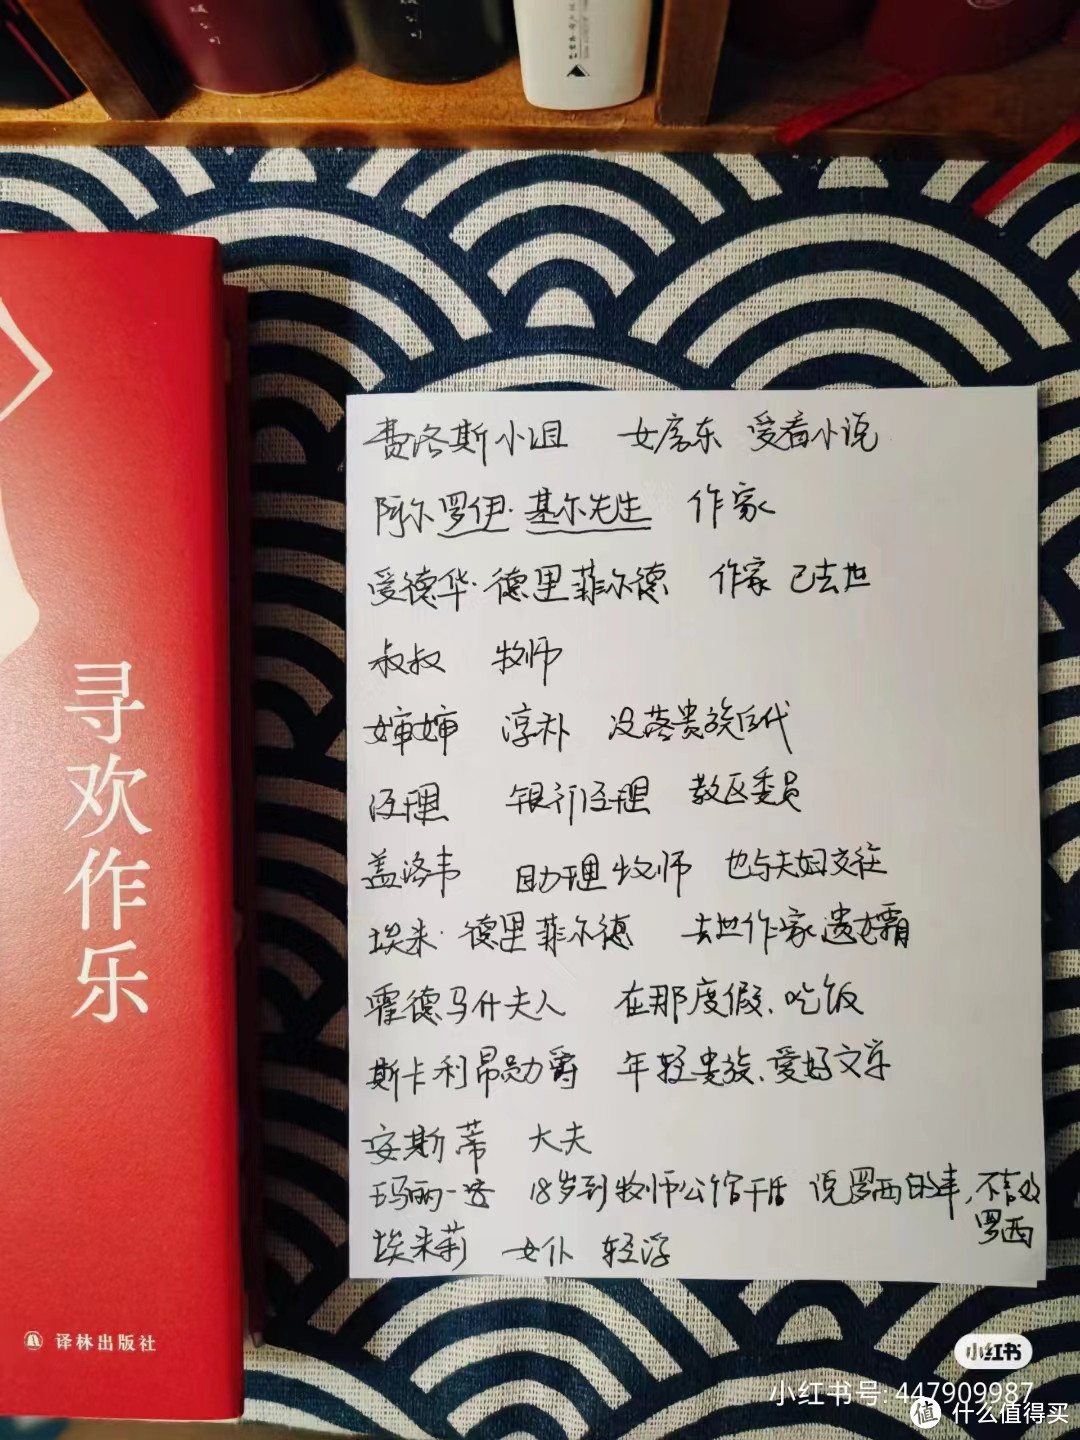 寻欢作乐
译林出版社
费洛斯小姐 女房东 爱看小说
阿尔罗伊·基尔先生 作家
爱德华·德里菲尔德 作家 已去世
叔叔 牧师
婶婶 淳朴 没落贵族后代
经理 银行经理 教区委员
盖洛韦 助理牧师 也与夫妇交往
埃米·德里菲尔德 去世作家遗孀
霍德马什夫人 在那度假、吃饭
斯卡利昂勋爵 年轻贵族、爱好文学
安斯蒂 大夫
玛丽-安 18岁到牧师公馆干活 说罗西的事,不喜欢
罗西
埃米莉 女仆 轻浮
小红书
小红书号: 447909987
值 什么值得买